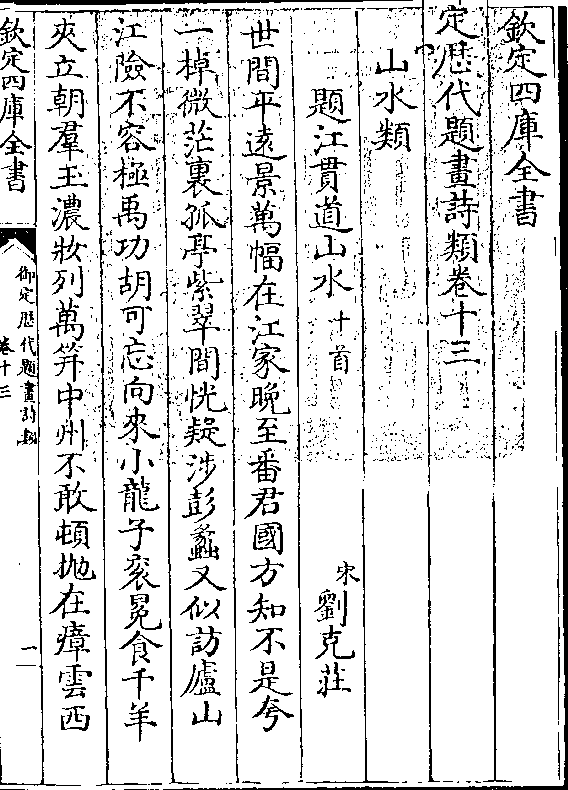 欽定四庫全書
定歴代題畫詩類卷十三
山水類
題江貫道山水十首
宋劉克莊
世間平遠景萬幅在江家晚至番君國方知不是夸
一棹微茫裏孤亭紫翠間恍疑涉彭蠡又似訪廬山
江險不容極禹功胡可忘向來小龍子衮冕食千羊
夾立朝羣玉濃妝列萬笄中州不敢頓抛在瘴雲西
欽定四庫全書
御定歴代題畫詩類
卷十三
一